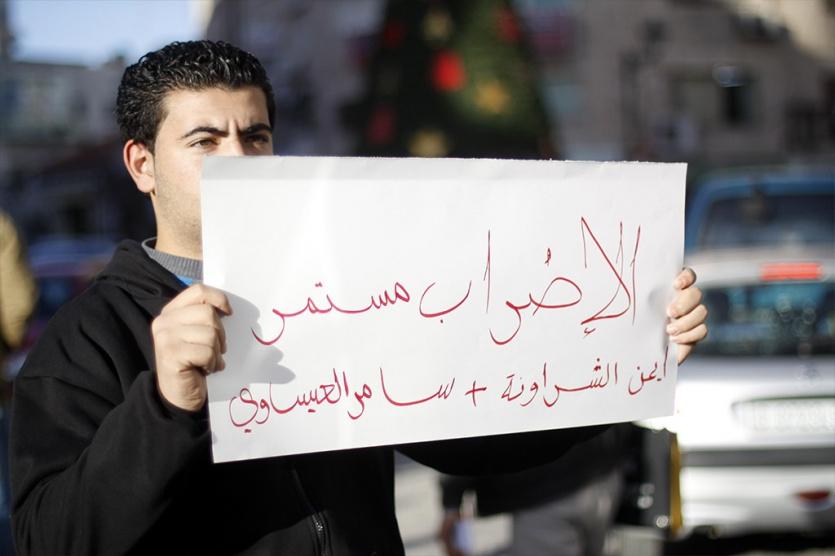 الإضراب مستمر
أيمن الشراونة + سامر العيساوي